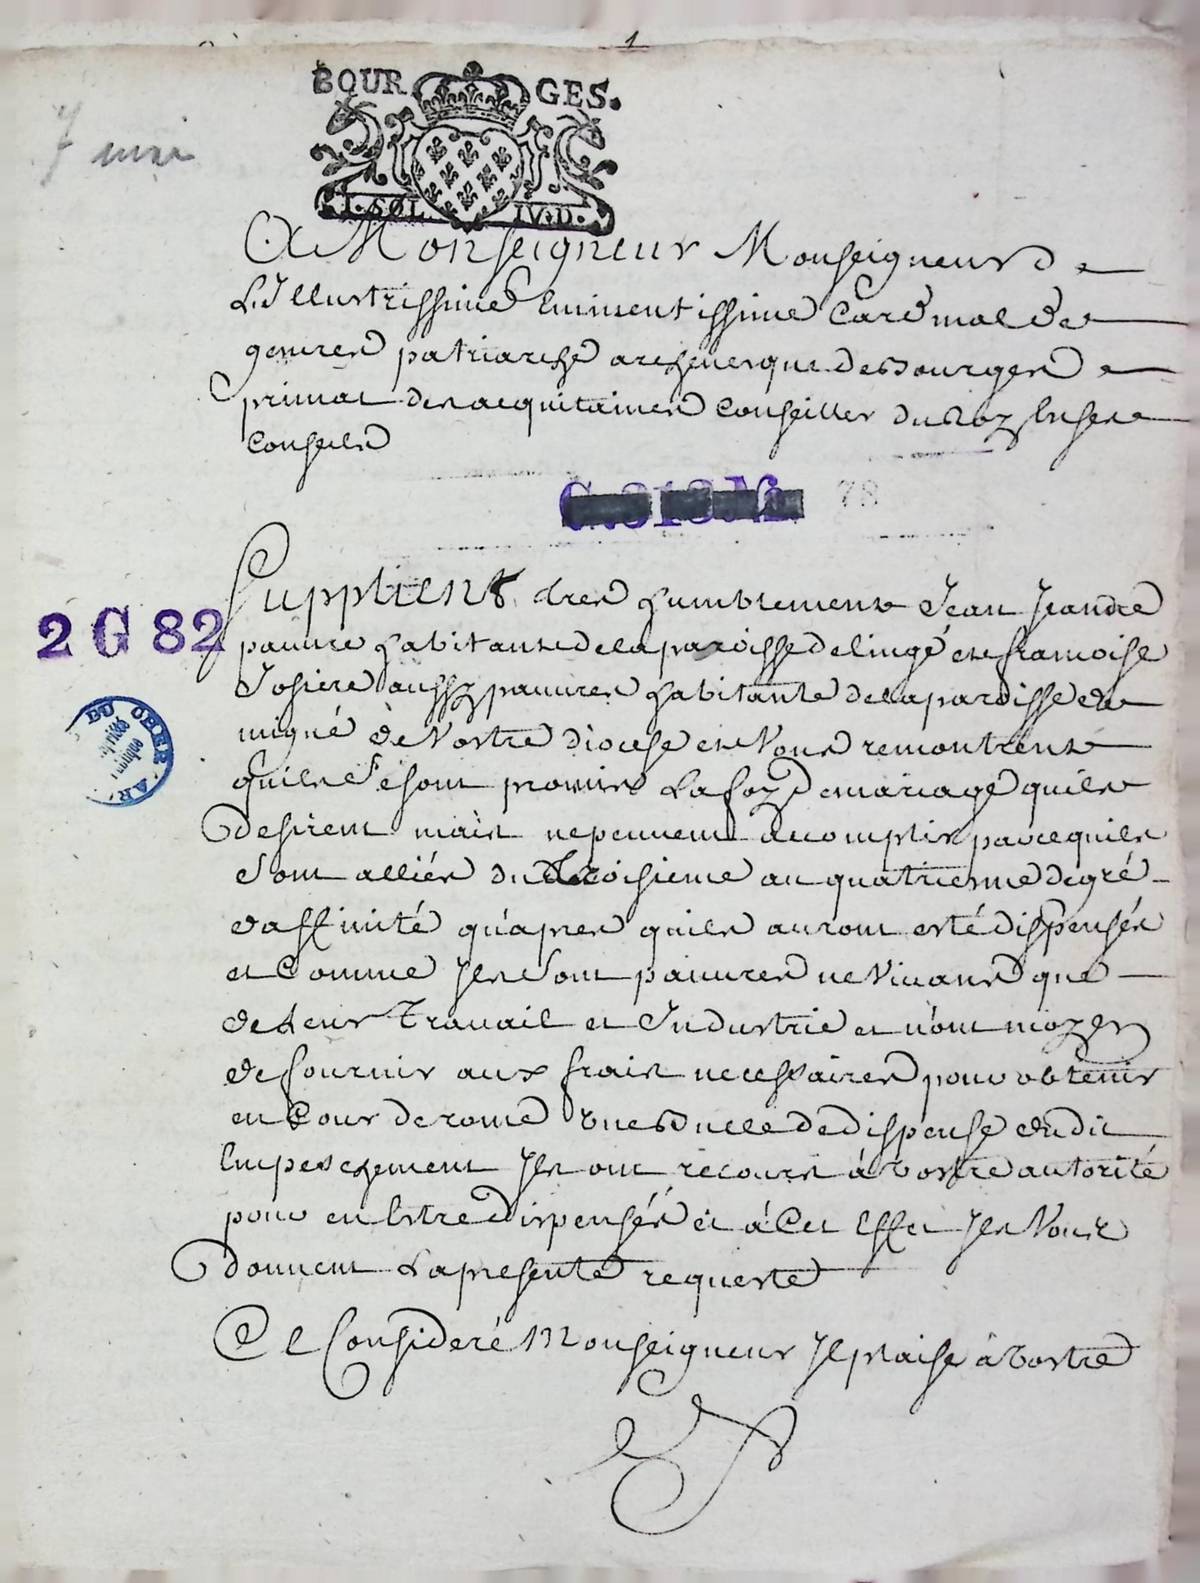 1
BOURGES.
7 mai
1. SOL. IV. D.
A Monseigneur Monseigneur
L'Illustrissime Eminentissime Cardinal de
gesures patriarche archeuesque de Bourges
primat des acquitaines Conseiller du Roy En ses
Conseils
78
Supplient tres humblement Jean Jeandre
pauure habitant de la paroisse de lingé et framoise
Josiere aussy pauures habitante de la paroisse de
migné de Vostre diocese et Vous remontrent
quils se sont promis La foy de mariage quils
desirent mais ne peuuent accomplir parce quils
sont alliés du troisieme au quatrieme degré
d'affinité qu'apres quils auront esté dispensés
et Comme Ils sont pauures ne Viuans que
de Leur Trauail et Industrie et n'ont moyen
de fournir aux frais necessaires pour obtenir
en Cour de rome vne Bulle de dispense du dit
Empeschement Ils ont recours à vostre autorité
pour en Estre dispensés et à Cet Effet Ils Vous
donnent La presente requeste
2 G 82
DU CHER
AR
Ce Consideré Monseigneur Il plaise à vostre